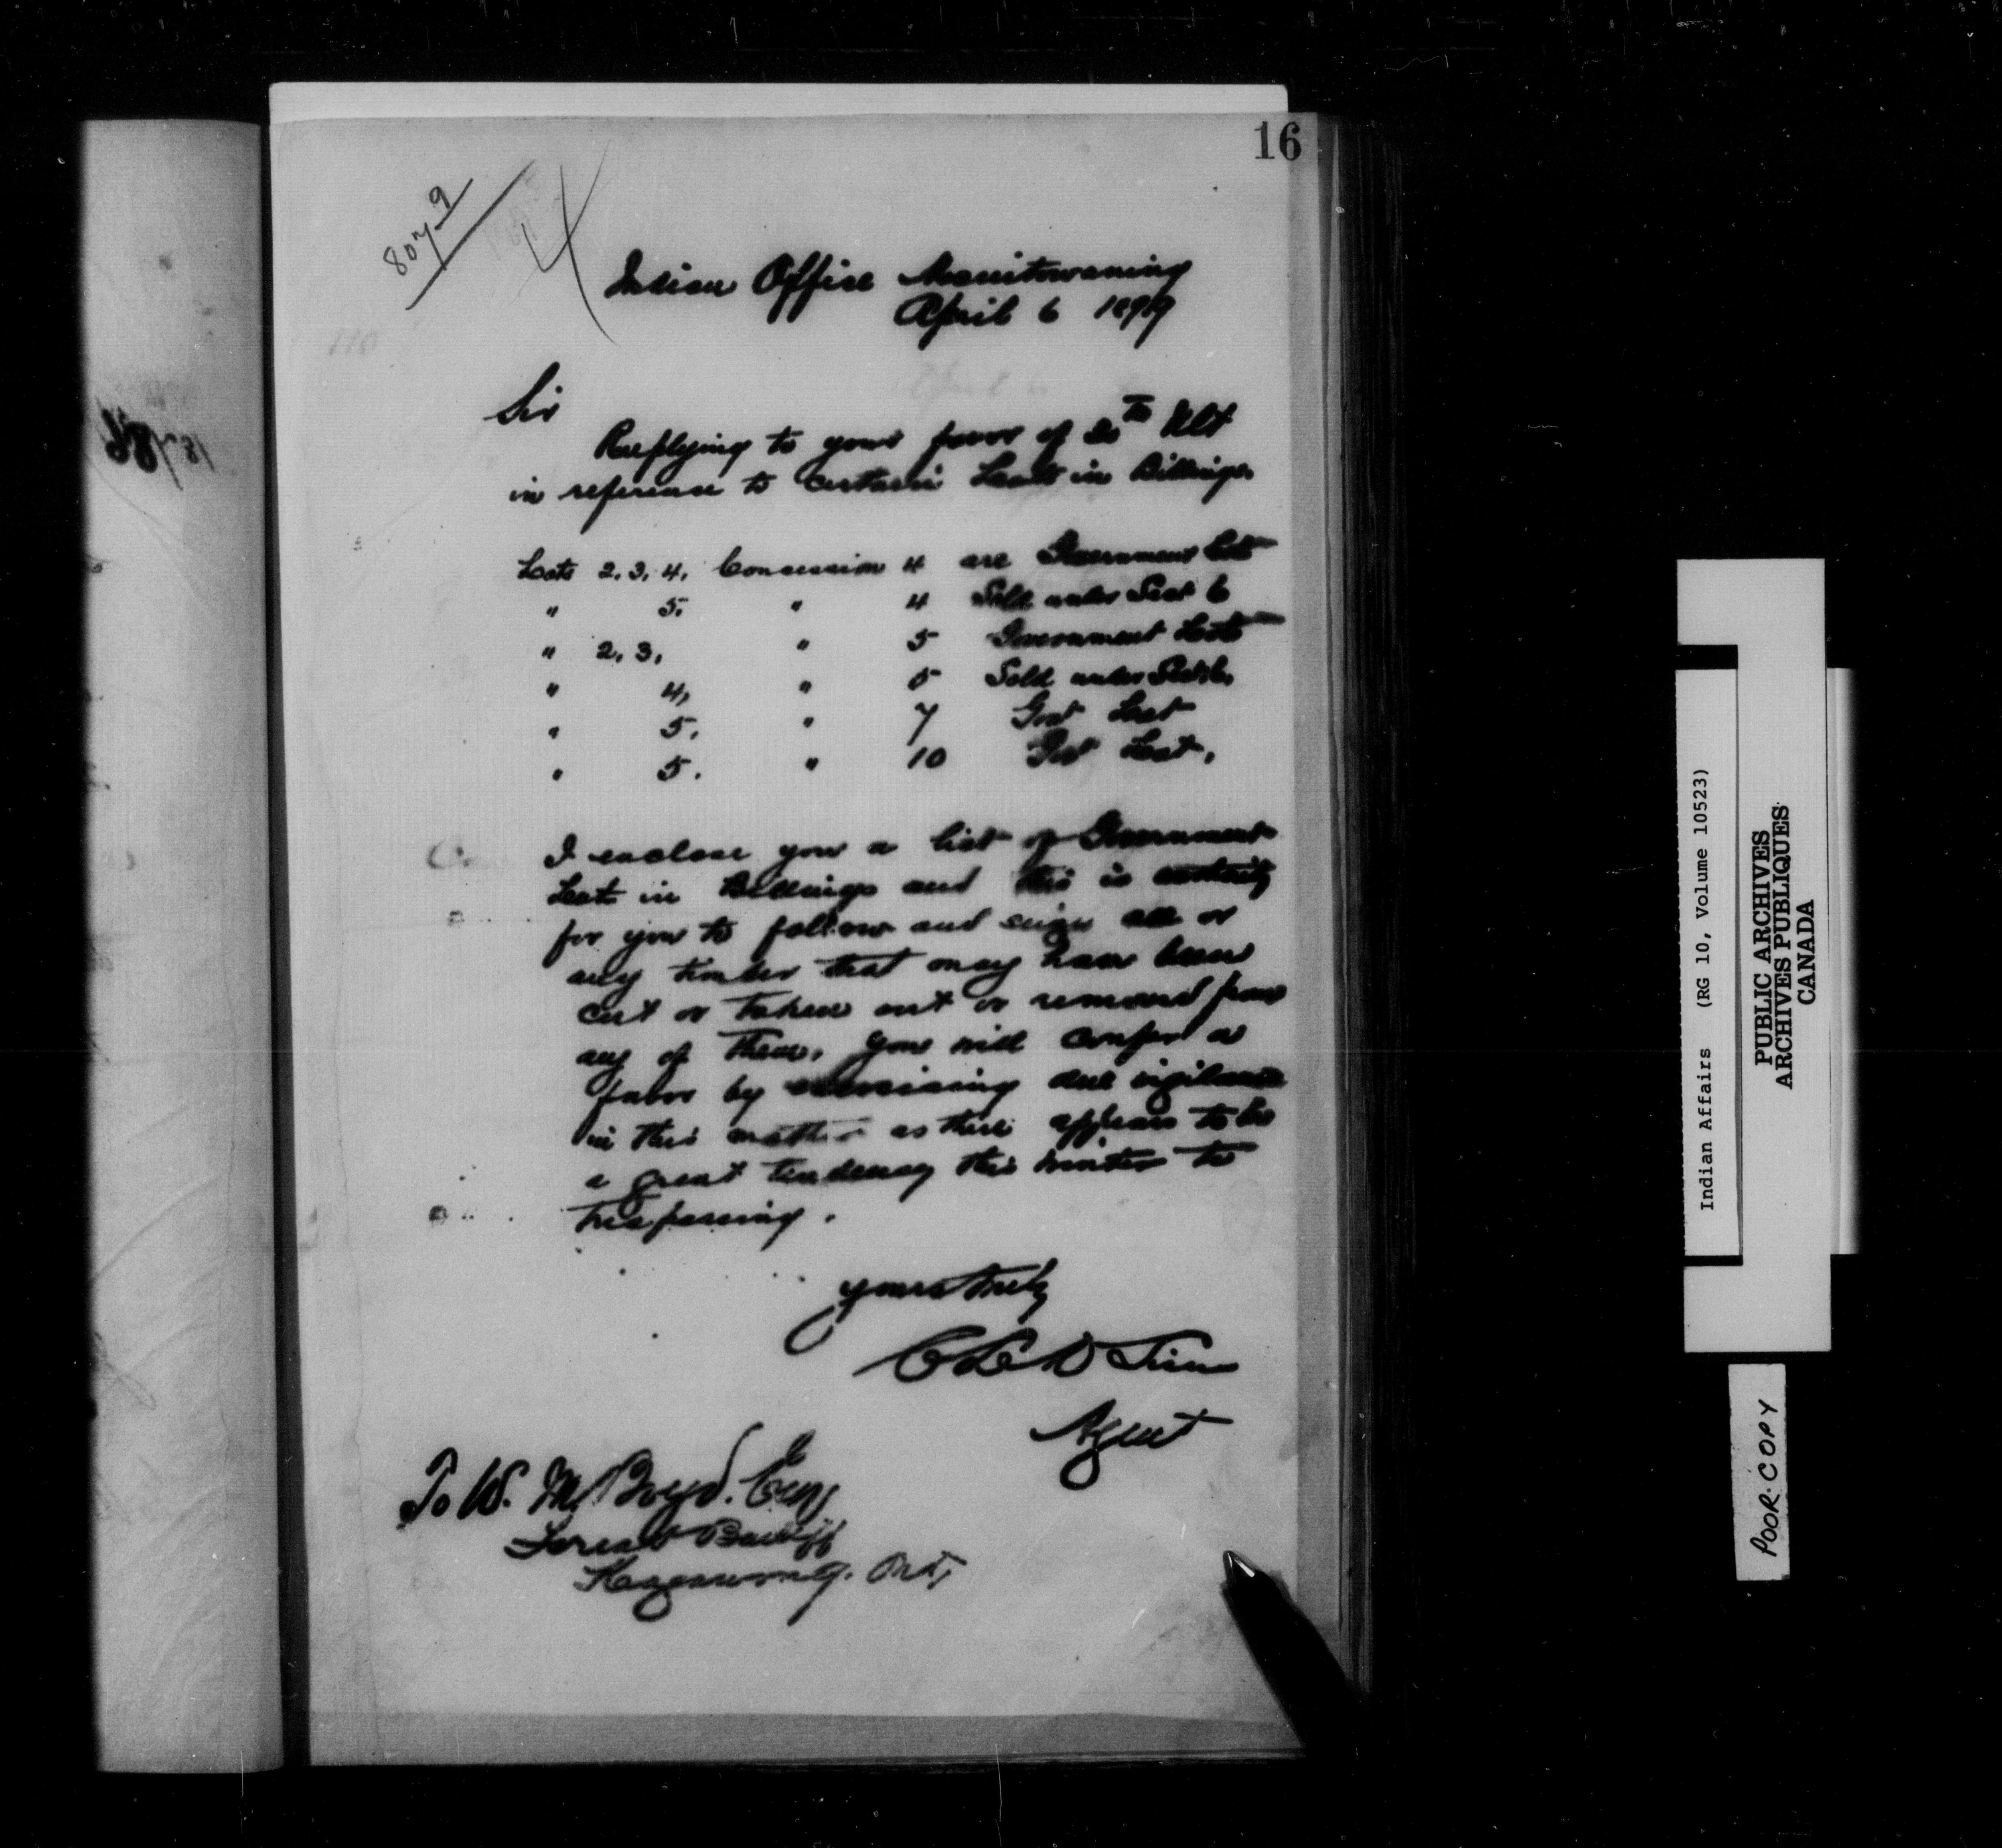 16
8079
Indian Office Manitowaning
April 6 1899
Sir
Replying to your favor of 20th Ult
in reference to certain Lots in Billings
Lots 2, 3, 4, Concession 4 are Government Lots
" 5. " 4 Sold under Sect 6
" 2, 3, " 5 Government Lots
" 4, " 5 Sold under Sect 6,
" 5. " 7 Govt Lot
" 5. " 10 Govt Lot.
I enclose you a list of Government
Lots in Billings and this is authority
for you to follow and seize all or
any timber that may have been
cut or taken out or removed from
any of them. You will confer a
favor by exercising due vigilance
in this matter as there appears to be
a great tendency this winter to
trespassing.
Yours truly
Agent
To W. M. Boyd. Esq
Forest Bailiff
Kagawong. Ont,
Indian Affairs (RG 10, Volume 10523)
PUBLIC ARCHIVES
ARCHIVES PUBLIQUES
CANADA
POOR COPY